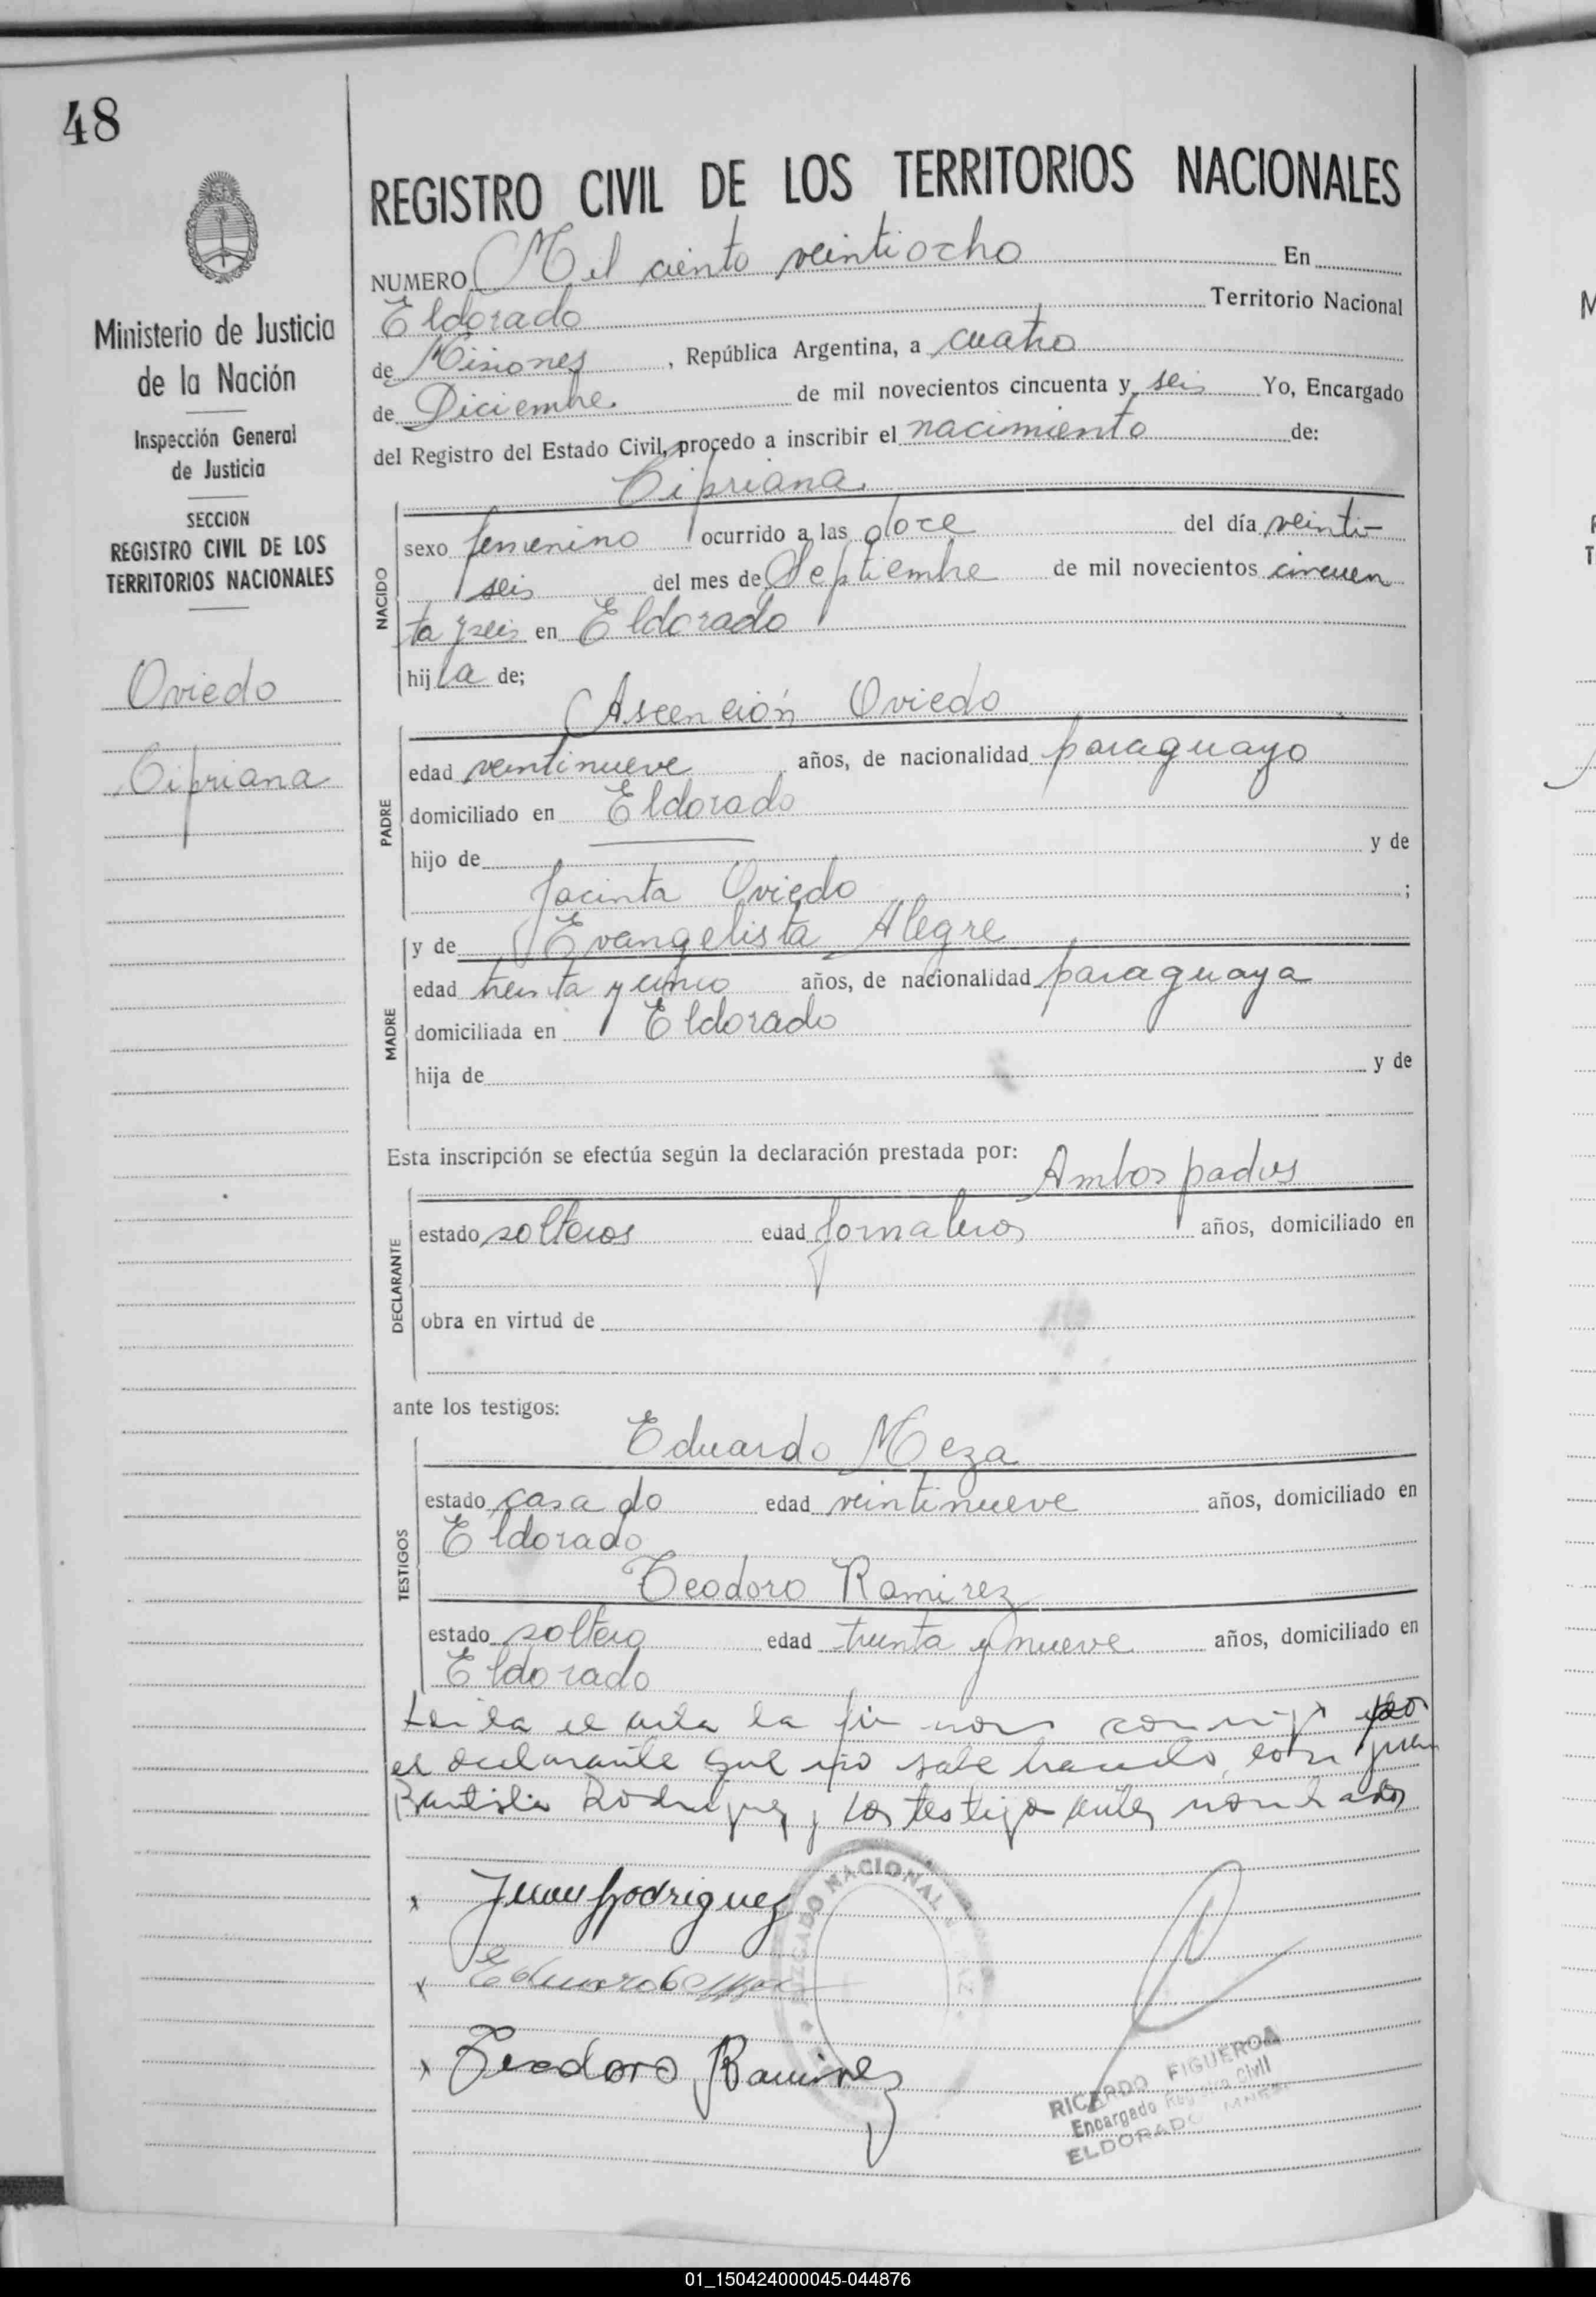 48
Ministerio de Justicia
de la Nación
Inspección General
de Justicia
SECCION
REGISTRO CIVIL DE LOS
TERRITORIOS NACIONALES
Oviedo
Cipriana
REGISTRO CIVIL DE LOS TERRITORIOS NACIONALES
NUMERO Mil ciento veintiocho En
Eldorado Territorio Nacional
de Misiones, República Argentina, a cuatro
de Diciembre de mil novecientos cincuenta y seis Yo, Encargado
del Registro del Estado Civil, procedo a inscribir el nacimiento de:
Cipriana
NACIDO
sexo femenino ocurrido a las doce del día veinti-
seis del mes de Septiembre de mil novecientos cincuen
ta y seis en Eldorado
hij la de;
Ascención Oviedo
PADRE
edad veintinueve años, de nacionalidad paraguayo
domiciliado en Eldorado
hijo de y de
Jacinta Oviedo ;
MADRE
y de Evangelista Alegre
edad treinta y cinco años, de nacionalidad paraguaya
domiciliada en Eldorado
hija de y de
Esta inscripción se efectúa según la declaración prestada por:
Ambos padres
DECLARANTE
estado solteros edad Jornaleros años, domiciliado en
obra en virtud de
ante los testigos:
Eduardo Meza
TESTIGOS
estado casado edad veintinueve años, domiciliado en
Eldorado
Teodoro Ramirez
estado soltero edad treinta y nueve años, domiciliado en
Eldorado
Leida el acta la firman conmigo por
el declarante que no sabe hacerlo, con Juan
Bautista Rodriguez y los testigos antes nombrados
x Juan Rodriguez
x Eduardo Meza
x Teodoro Ramirez
JUZGADO NACIONAL DE PAZ
RICARDO FIGUEROA
Encargado Registro Civil
ELDORADO MNES.
01_150424000045-044876